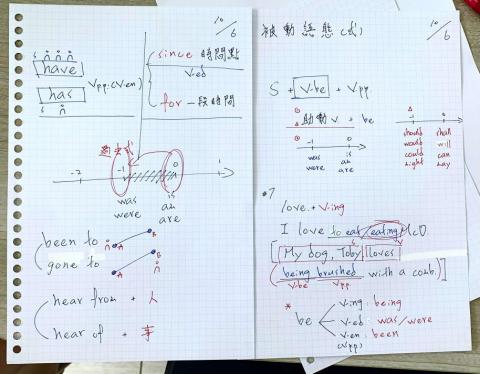 10/6
have
has
S
Vpp.(V-en)
since 時間點
V-ed
for 一段時間
過去式
-2
-1
0
1
was
were
is
am
are
been to
A
B
gone to
A
B
hear from + 人
hear of + 事
10/6
被動語態(式)
S + V-be + Vpp
助動V + be
-1
0
was
were
is
am
are
-1
0
should
would
could
might
shall
will
can
may
*7
love + V-ing
I love to eat/eating McD
My dog, Toby loves
S
V
being brushed with a comb.
V-be
Vpp
*
be
V-ing: being
V-ed: was/were
V-en: been
(Vpp)